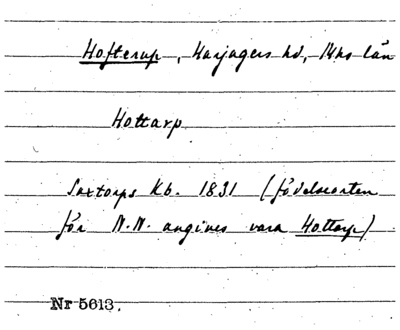 Hofterup, Harjagers hd, Mhs län
Hottarp
Saxtorps Kb. 1831 (födelseorten
för N.N. angives vara Hottorp)
Nr 5613.